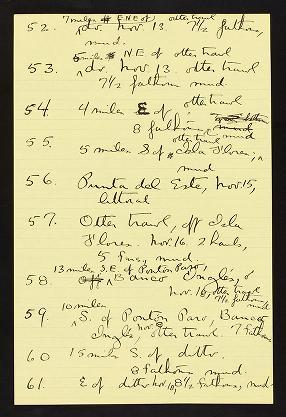 7 miles ENE of otter trawl
52. do. Nov. 13. 7½ fathoms,
mud.
5 miles NE of otter trawl
53. do. Nov. 13. otter trawl
7½ fathoms mud.
54. 4 miles E of otter trawl
8 fathoms, mud
otter trawl mud
55. 5 miles S. of Isla Flores,
mud
56. Punta del Este, Nov. 15,
littoral
57. Otter trawl, off Isla
Flores. Nov. 16. 2 hauls,
5 fms, mud.
13 miles S.E. of Ponton Faro,
58. off Banco Inglés,
Nov. 16, otter trawl
7½ fathoms mud
10 miles
59. S. of Ponton Faro, Banco
Inglés, otter trawl. 7 fathoms
Nov.
60 15 miles S. of ditto.
8 fathoms mud.
61. E of ditto Nov 8½ fathoms, mud